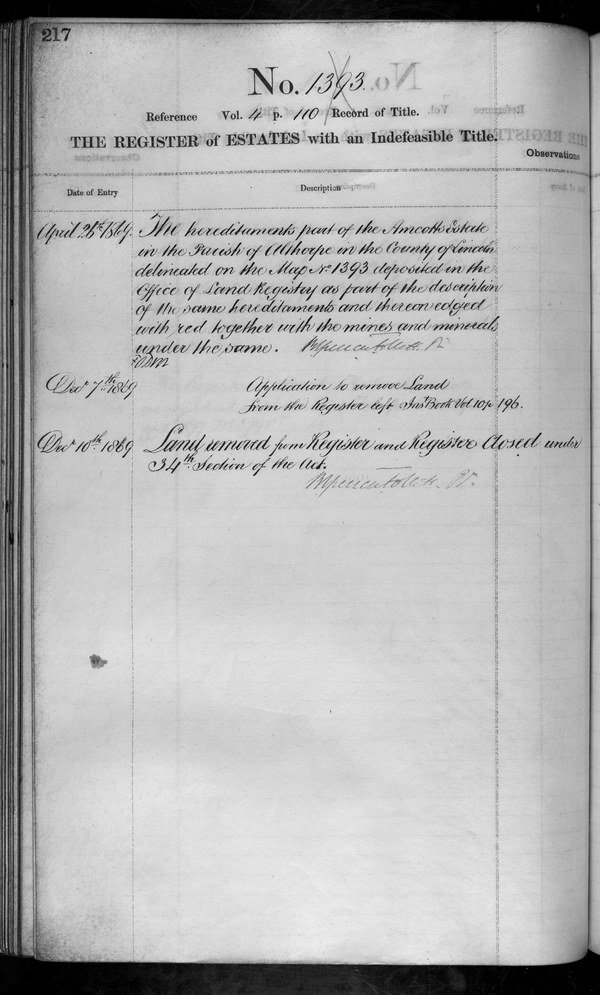 217
No. 1393.
Reference Vol. 4 p. 110 Record of Title.
THE REGISTER of ESTATES with an Indefeasible Title.
Observations
Date of Entry
Description
April 26th 1869. The hereditaments part of the Amcotts Estate
in the Parish of Althorpe in the County of Lincoln
delineated on the Map No 1393 deposited in the
Office of Land Registry as part of the description
of the same hereditaments and thereon edged
with red together with the mines and minerals
under the same.
Decr 7th 1869 Application to remove Land
from the Register left Inst Book Vol 10 p 196.
Decr 10th 1869 Land removed from Register and Register Closed under
34th Section of the Act.